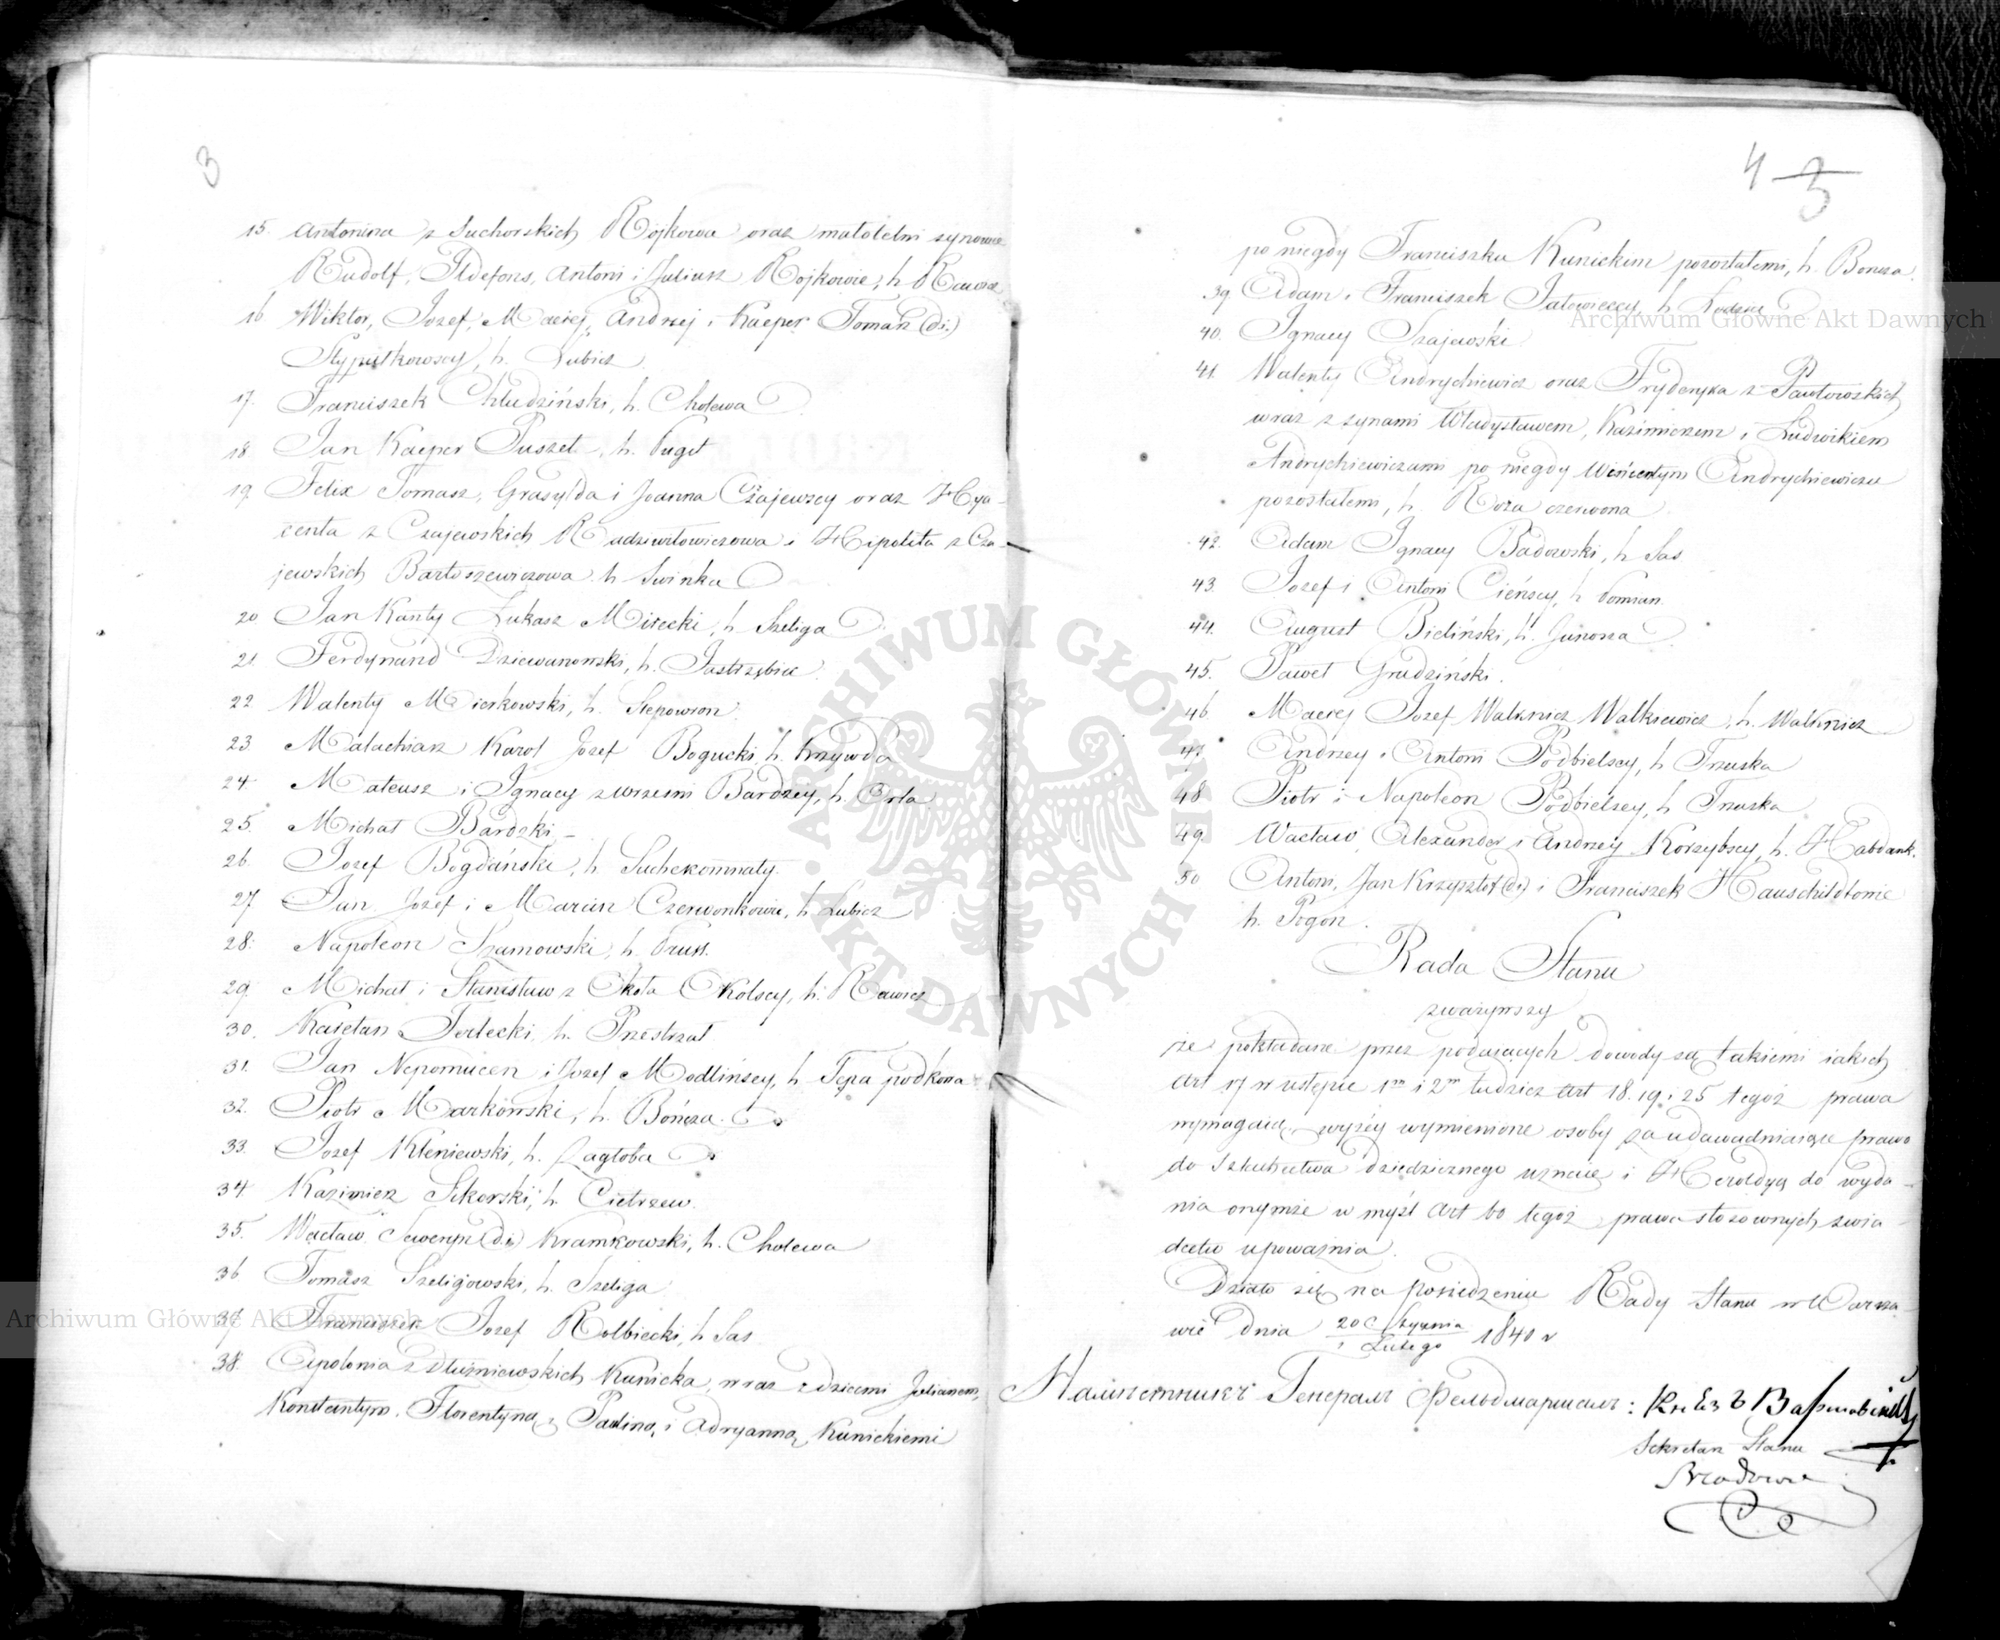 3
15. Antonina z Suchorskich Rojkowa oraz małoletni synowie
Rudolf, Ildefons, Antoni i Juliusz Rojkowie, h. Rawicz
16 Wiktor, Jozef, Maciej, Andrzej i Kacper Tomasz (di.)
Stypułkowscy, h. Lubicz.
17. Franciszek Chludziński, h. Cholewa
18. Jan Kacper Puszet, h. Puget
19. Felix Tomasz, Grasylda i Joanna Czajewscy oraz Hya-
centa z Czajewskich Radziwiłowiczowa i Hipolita z Cza-
jewskich Bartoszewiczowa h. Swinka
20 Jan Kanty Łukasz Mirecki, h. Szeliga
21. Ferdynand Dziewanowski, h. Jastrzębiec
22 Walenty Mierkowski, h. Slepowron
23. Malachiasz Karol Jozef Bogucki, h. Krzywda
24 Mateusz i Ignacy z wrzesni Bardzcy, h. Orla
25. Michał Bardzki
26. Jozef Bogdański, h. Suchekomnaty.
27. Jan Jozef i Marcin Czerwonkowie, h. Lubicz
28. Napoleon Szamowski, h. Pruss.
29. Michał i Stanisław z Okoła Okolscy, h. Rawicz
30. Kajetan h. Przestrzał
31. Jan Nepomucen i Jozef Modlińscy, h. Tępa podkowa
32. Piotr Markowski, h. Bończa.
33. Jozef Kleniewski, h. Zagłoba
34 Kazimierz Sikorski, h. Cietrzew.
35. Wacław Seweryn (di.) Kramkowski, h. Cholewa
36 Tomasz Szeligowski, h. Szeliga
37. Franciszek Jozef Rolbiecki, h. Sas
38. Apolonia z Dłużniewskich Kunicka, wraz z dziecmi Julianem,
Konstantym, Florentyną, Pauliną, i Adryanną Kunickiemi
4 3
po niegdy Franciszku Kunickim pozostałemi, h. Boncza.
39. Adam i Franciszek Jałowieccy, h. Lodzia
40. Ignacy Szajewski
41. Walenty Andrychiewicz oraz Fryderyka z Pawłowskich
wraz z synami Władysławem, Kazimierzem i Ludwikiem
Andrychiewiczami po niegdy Wincentym Andrychiewiczu
pozostałemi, h. Roża czerwona
42. Adam Ignacy Badowski, h. Sas
43. Jozef i Antoni Cieńscy, h. Pomian.
44. August Bieliński, h. Junosza
45. Paweł Grudziński.
46. Maciej Jozef Walknicz Walkiewicz, h. Walknicz
47. Andrzey i Antoni Podbielscy, h. Trzaska
48 Piotr i Napoleon Podbielscy, h. Trzaska
49. Wacław, Alexander i Andrzey Korzybscy, h. Habdank.
50 Antoni, Jan Krzysztof (di) i Franciszek Hauschildtowie
h. Pogon.
Rada Stanu
zważywszy
że pokładane przez podających dowody są takiemi iakich
Art 17 w ustępie 1m i 2m tudzież Art 18. 19 i 25 tegoż prawa
wymagaią, wyżey wymienione osoby za udawadniaiące prawo
do szlachectwa dziedzicznego uznaie i Heroldyą do wyda-
nia onymże w myśl Art 60 tegoż prawa stosownych swia-
dectw upoważnia.
Działo się na posiedzeniu Rady Stanu w Warsza-
wie dnia 20 Stycznia / 1 Lutego 1840 r
Намѣстникъ Генералъ Фельдмаршалъ: Князь Варшавскій
Sekretarz Stanu
Archiwum Główne Akt Dawnych
Archiwum Główne Akt Dawnych
ARCHIWUM GŁÓWNE
AKT DAWNYCH